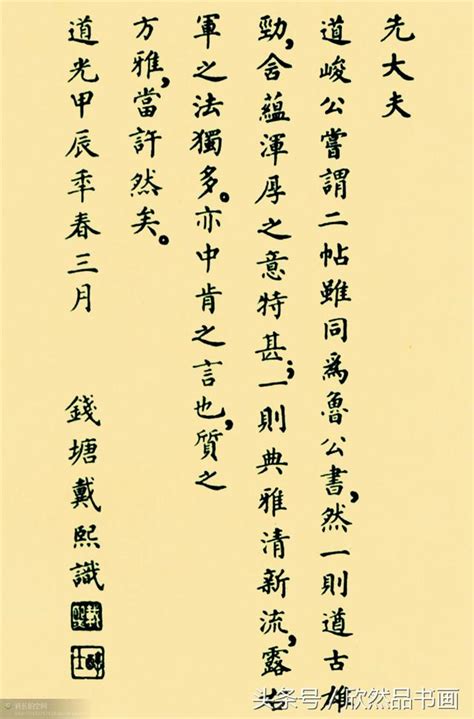 先大夫
道峻公嘗謂二帖雖同爲魯公書,然一則遒古雄
勁,含蘊渾厚之意特甚;一則典雅清新流,露右
軍之法獨多。亦中肯之言也,質之
方雅,當許然矣。
道光甲辰秊春三月 錢塘戴熙識
头条号 / 欣然品书画